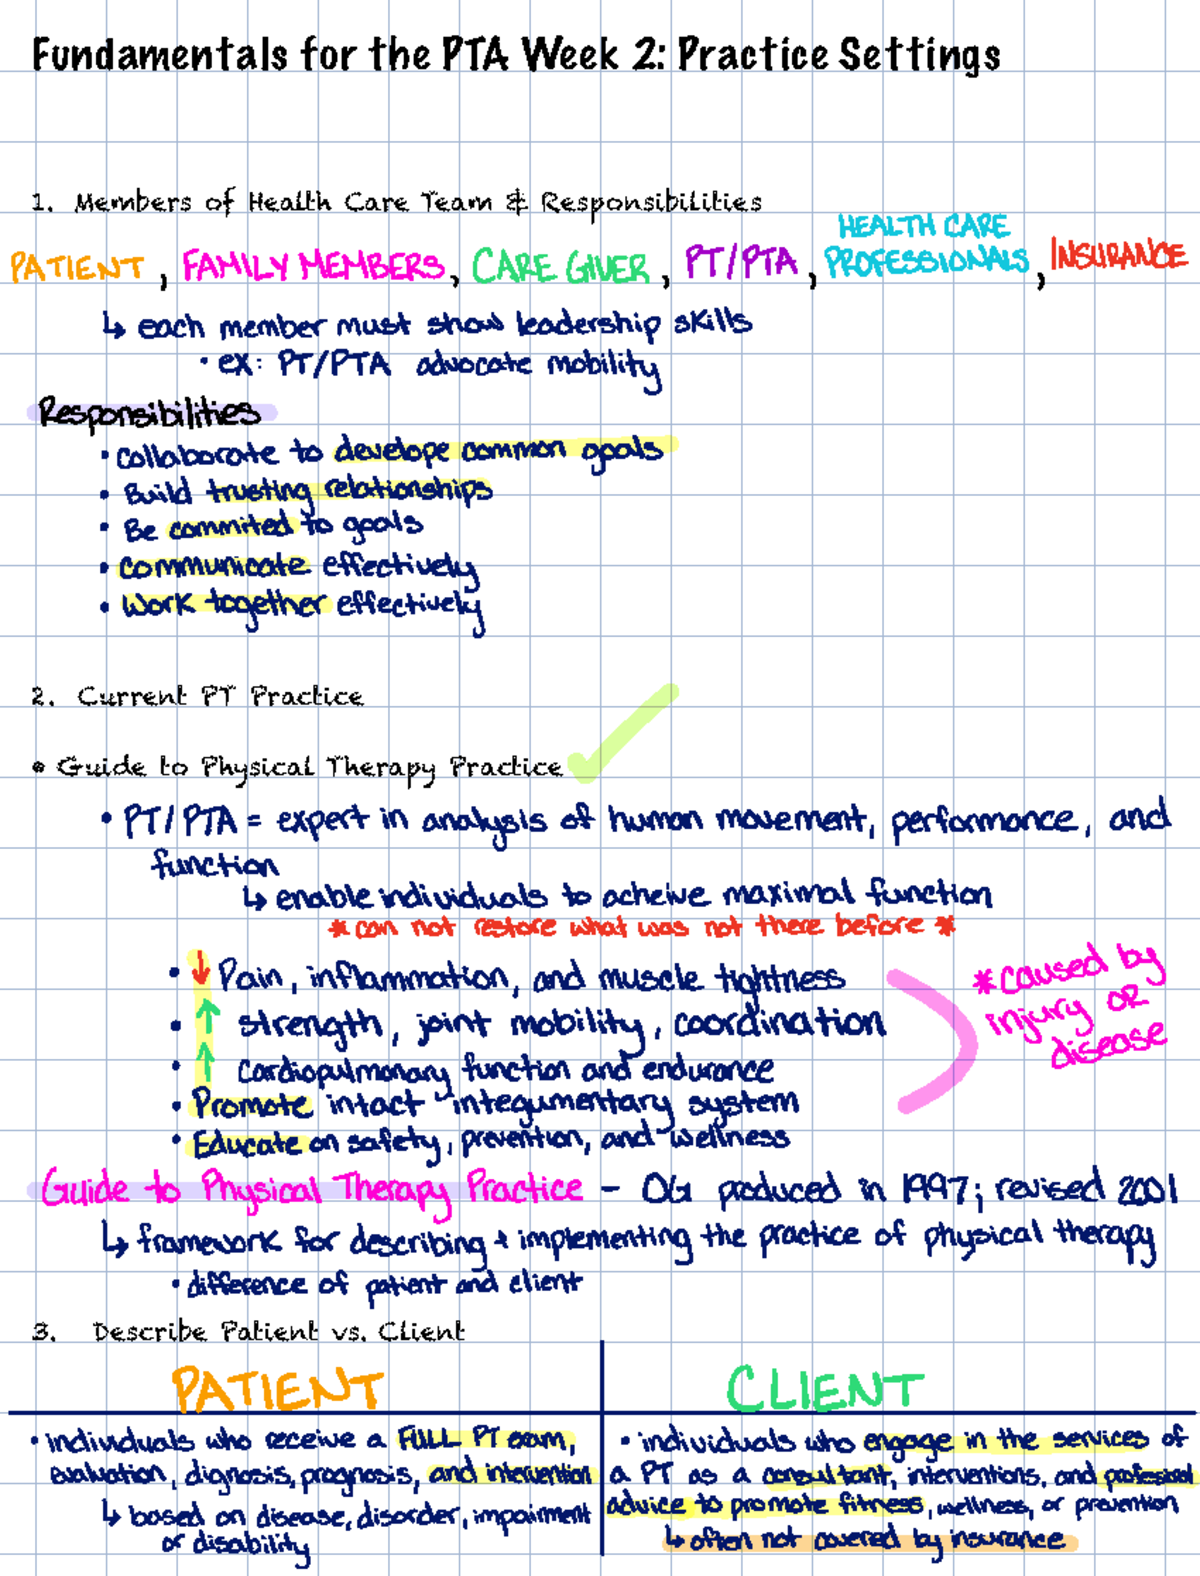 Fundamentals for the PTA Week 2: Practice Settings
1. Members of Health Care Team & Responsibilities
PATIENT, FAMILY MEMBERS, CARE GIVER, PT/PTA, HEALTH CARE PROFESSIONALS, INSURANCE
↳ each member must show leadership skills
• ex: PT/PTA advocate mobility
Responsibilities
• collaborate to develope common goals
• Build trusting relationships
• Be commited to goals
• communicate effectively
• Work together effectively
2. Current PT Practice
• Guide to Physical Therapy Practice
• PT/PTA = expert in analysis of human movement, performance, and
function
↳ enable individuals to acheive maximal function
* can not restore what was not there before *
• ↓ Pain, inflammation, and muscle tightness
• ↑ strength, joint mobility, coordination
• ↑ Cardiopulmonary function and endurance
• Promote intact integumentary system
• Educate on safety, prevention, and wellness
* caused by
injury or
disease
Guide to Physical Therapy Practice - OG produced in 1997; revised 2001
↳ framework for describing + implementing the practice of physical therapy
• difference of patient and client
3. Describe Patient vs. Client
PATIENT
• individuals who receive a FULL PT exam,
evaluation, diagnosis, prognosis, and intervention
↳ based on disease, disorder, impairment
or disability
CLIENT
• individuals who engage in the services of
a PT as a consultant, interventions, and professional
advice to promote fitness, wellness, or prevention
↳ often not covered by insurance